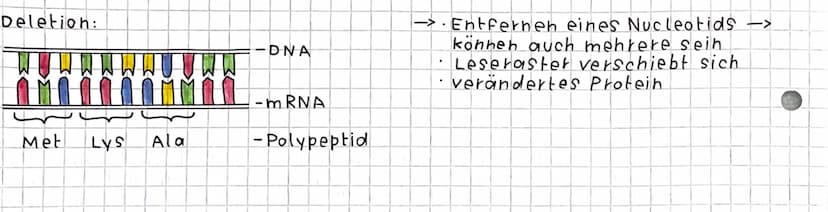 Deletion:
→ · Entfernen eines Nucleotids →
können auch mehrere sein
· Leseraster verschiebt sich
· verändertes Protein
-DNA
-mRNA
Met Lys Ala -Polypeptid